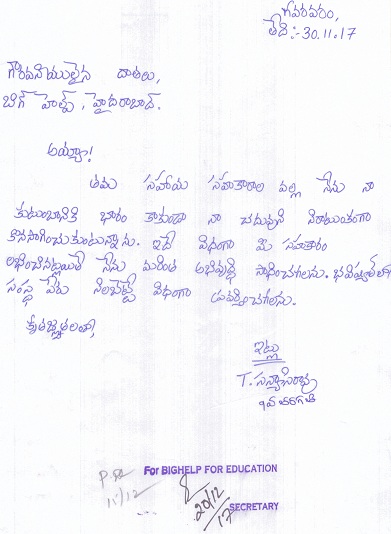 గవరవరం,
తేది:-30.11.17
గౌరవనీయులైన దాతలు,
బిగ్ హెల్ప్, హైదరాబాద్.
అయ్యా!
తమ సహాయ సహకారాల వల్ల నేను నా
కుటుంబానికి భారం కాకుండా నా చదువుని నిరాటంకంగా
కొనసాగించుకుంటున్నాను. ఇదే విధంగా మీ సహకారం
లభించినట్లయితే నేను మరింత అభివృద్ధి సాధించగలను. భవిష్యత్ లో
సంస్థ పేరు నిలబెట్టే విధంగా ప్రవర్తించగలను.
కృతజ్ఞతలతో,
ఇట్లు
T. సన్యాసిరావు
9వ తరగతి
For BIGHELP FOR EDUCATION
11/12
20/12/17
SECRETARY